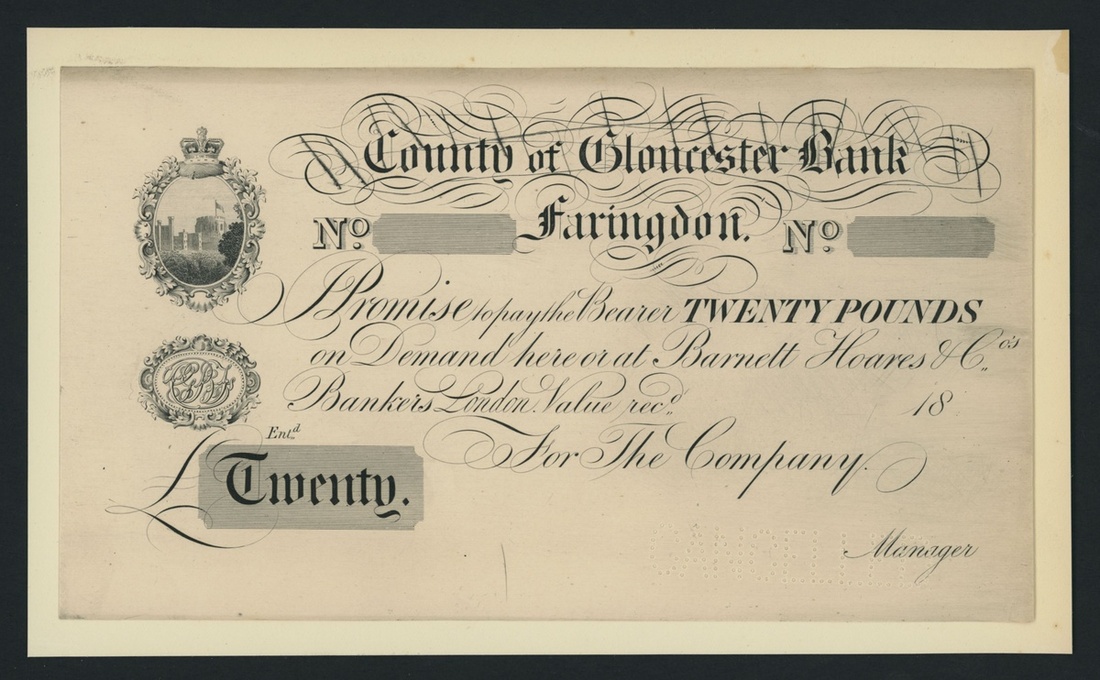 County of Gloucester Bank
No. Faringdon. No.
I Promise to pay the Bearer TWENTY POUNDS
on Demand here or at Barnett Hoares & Co.'s
Bankers London. Value rec.d 18
Ent.d
For The Company.
£ Twenty.
CANCELLED
Manager